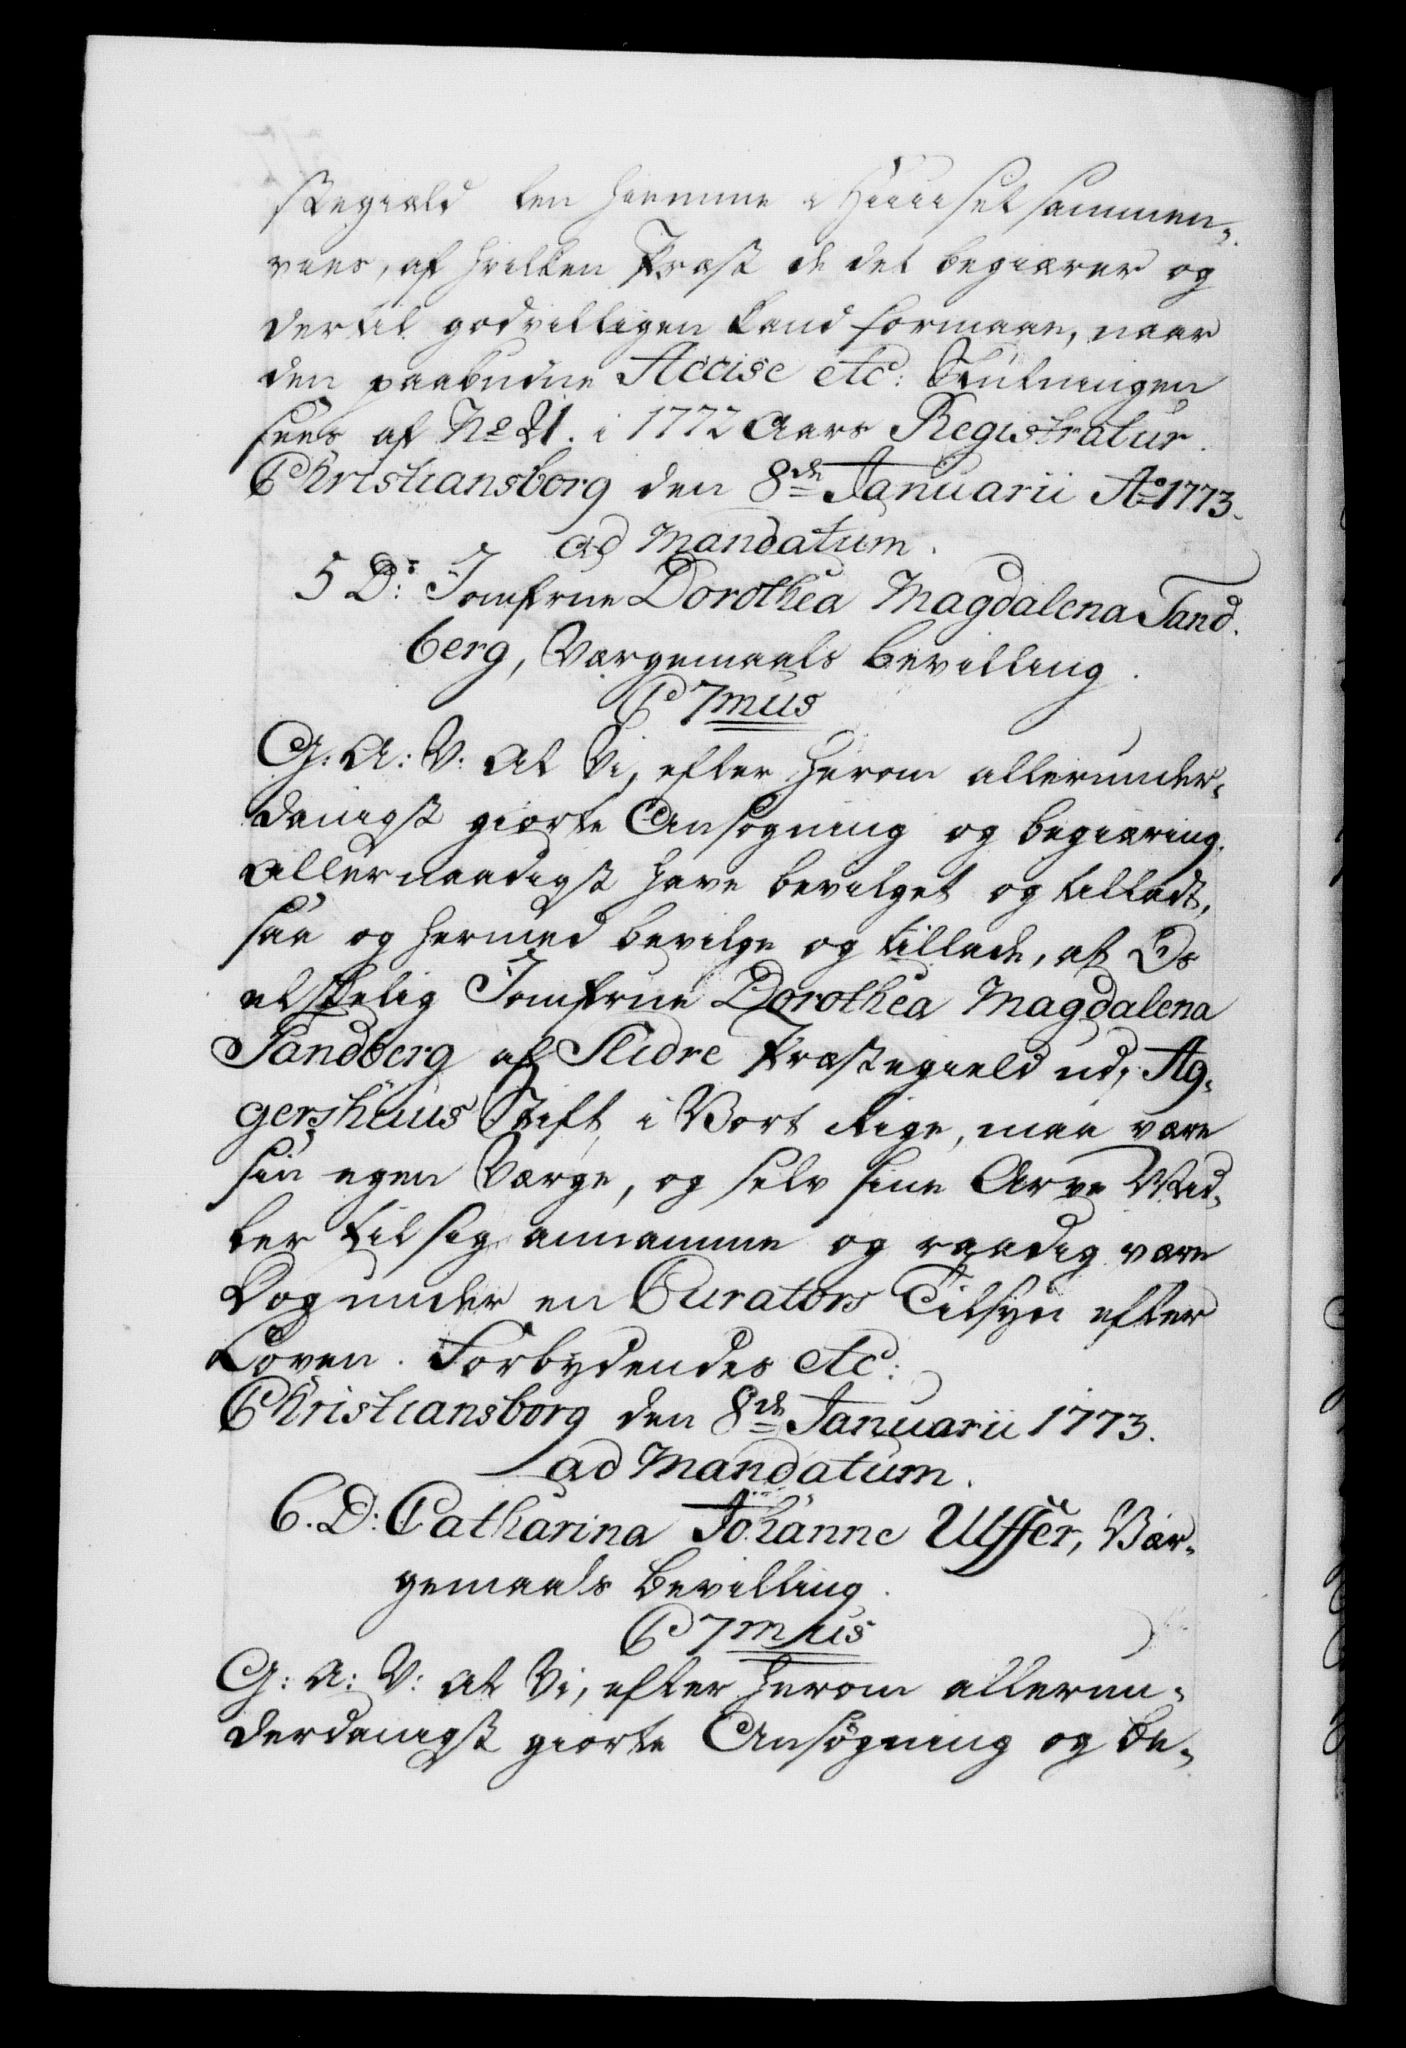 stegiæld kan hiemme i Huuset sammen-
vies, af hvilken Præst de det begiærer og
dertil godvilligen kand formaae, naar
den paabudne Accise etc: Slutningen
sees af No 21. i 1772 Aars Registratur.
Christiansborg den 8de Januarii Ao 1773.
ad Mandatum.
5 D: Jomfrue Dorothea Magdalena Sand-
berg, Værgemaals Bevilling.
C 7mus
G: A: V: At Vi, efter herom allerunder-
danigst giorte Ansøgning og begiæring,
allernaadigst have bevilget og tilladt,
saa og hermed bevilge og tillade, at Os
elskelig Jomfrue Dorothea Magdalena
Sandberg af Slidre Præstegield udi Ag-
gershuus Stift i Vort Rige, maa være
sin egen Værge, og selv sine Arve Mid-
ler til sig annamme og raadig være
Dog under en Curators Tilsyn efter
Loven. Forbydendes etc:
Christiansborg den 8de Januarii 1773.
ad Mandatum.
6. D: Catharina Johanne Ulffer, Vær-
gemaals Bevilling.
C 7mus
G: A: V: At Vi, efter herom allerun-
derdanigst giorte Ansøgning og be-